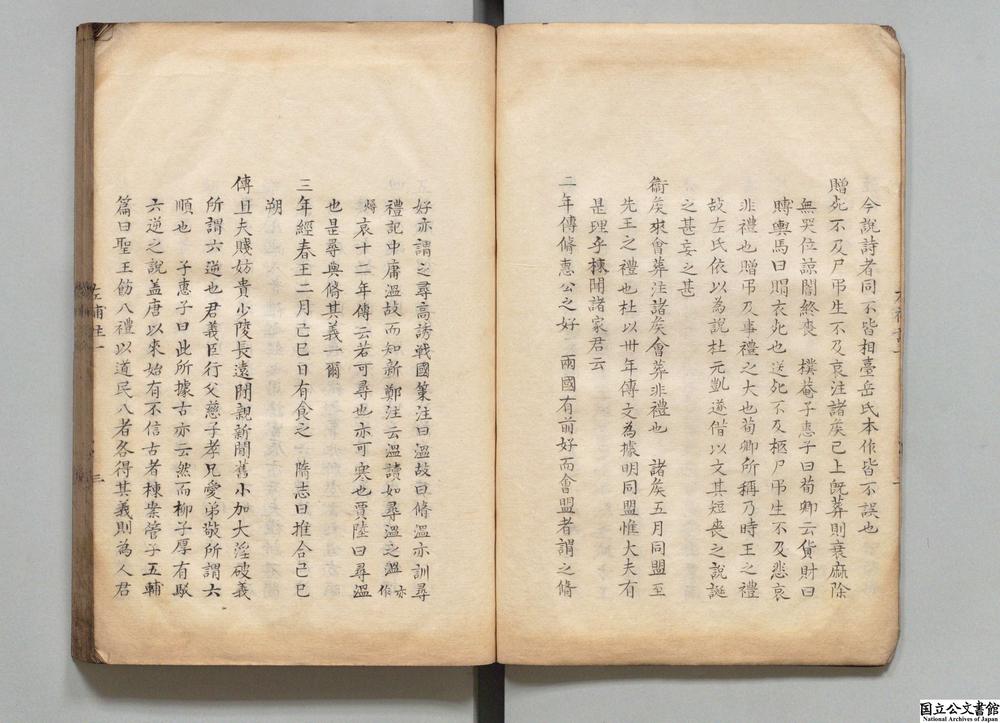 今說詩者同不皆相臺岳氏本作皆不誤也
贈死不及尸弔生不及哀注諸矦已上既葬則衰麻除
無哭位諒闇終喪 樸菴子惠子曰荀卿云貨財曰
賻輿馬曰賵衣死也送死不及柩尸弔生不及悲哀
非禮也贈弔及事禮之大也荀卿所稱乃時王之禮
故左氏依以為說杜元凱遂借以文其短喪之說誕
之甚妄之甚
衞矦來會葬注諸矦會葬非禮也 諸矦五月同盟至
先王之禮也杜以卅年傳文為據明同盟惟大夫有
是理乎棟聞諸家君云
二年傳脩惠公之好 兩國有前好而會盟者謂之脩
好亦謂之尋高誘戰國策注曰溫故曰脩溫亦訓尋
禮記中庸溫故而知新鄭注云溫讀如尋溫之溫亦作
燖哀十二年傳云若可尋也亦可寒也賈陸曰尋溫
也是尋與脩其義一爾
三年經春王二月己巳日有食之 隋志曰推合己巳
朔
傳且夫賤妨貴少陵長遠閒親新閒舊小加大淫破義
所謂六逆也君義臣行父慈子孝兄愛弟敬所謂六
順也 子惠子曰此所據古亦云然而柳子厚有駁
六逆之說蓋唐以來始有不信古者棟案管子五輔
篇曰聖王飭八禮以道民八者各得其義則為人君
左甫注一
三
国立公文書館
National Archives of Japan